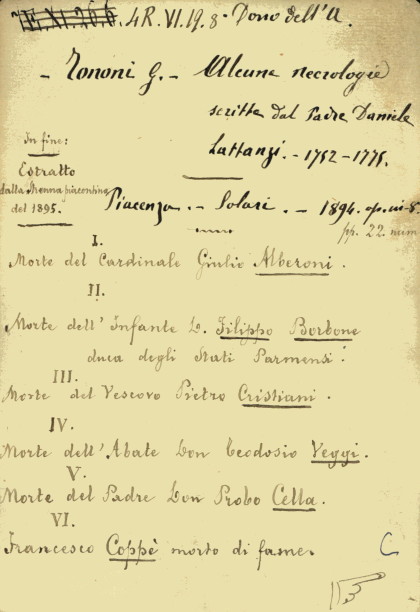 4R.VI.19.8- Dono dell'A.
- Tononi G. - Alcune necrologie
scritte dal Padre Daniele
Lattanzi. - 1752-1775.
In fine:
Estratto
dalla Strenna piacentina
del 1895.
Piacenza. - Solari. - 1894.
pp. 22. num
I.
Morte del Cardinale Giulio Alberoni.
II.
Morte dell'Infante D. Filippo Borbone
duca degli Stati Parmensi.
III.
Morte del Vescovo Pietro Cristiani.
IV.
Morte dell'Abate Don Teodosio Veggi.
V.
Morte del Padre Don Probo Cella.
VI.
Francesco Coppè morto di fame.